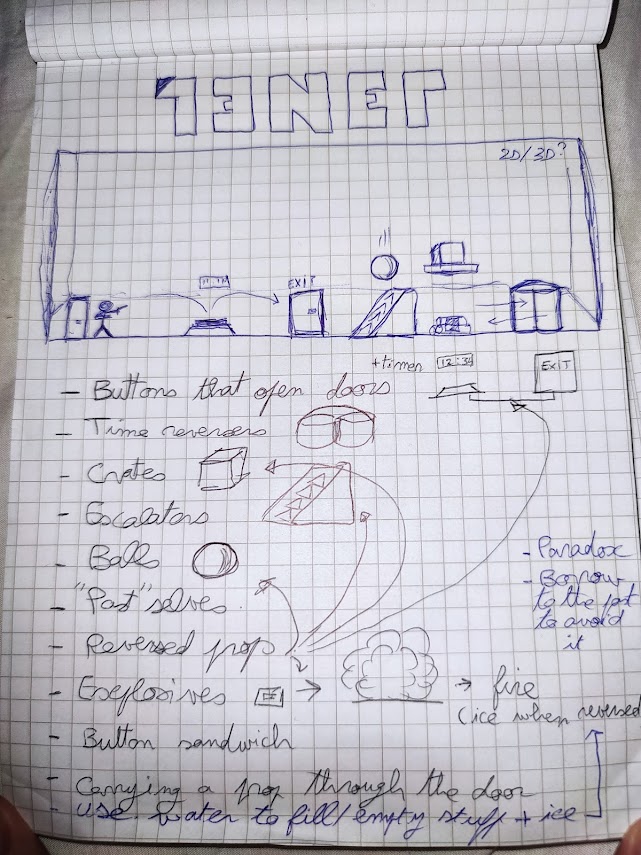 TENET
2D/3D?
EXIT
+timer 12:34 EXIT
- Buttons that open doors
- Time reversers
- Crates
- Escalators
- Balls
- "Past" selves
- Reversed prop
- Explosives → → fire
(ice when reversed
- Button sandwich
- Carrying a prop through the door
- use water to fill/empty stuff + ice
- Paradox
- Borrow
to the
to avoid
it